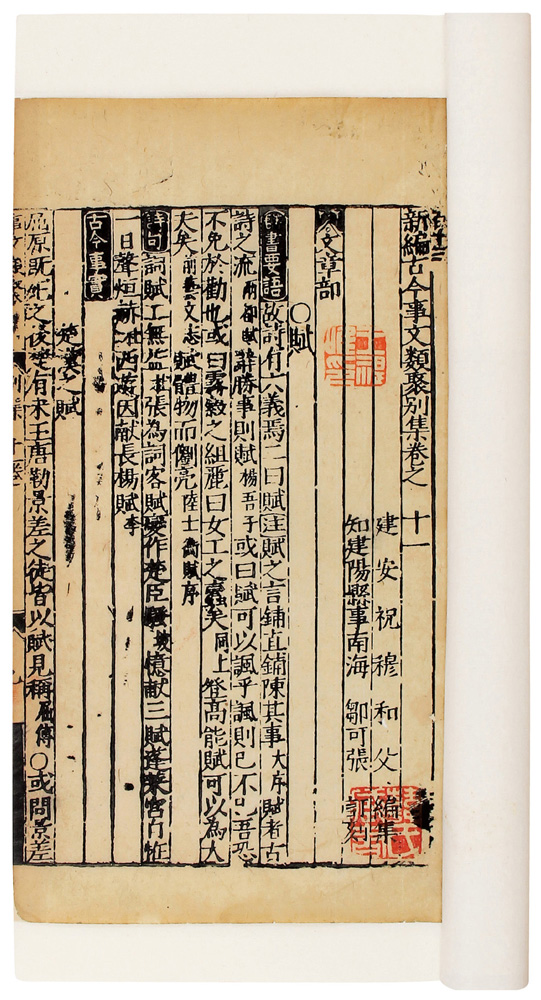 新編古今事文類聚別集卷之十一
建安祝穆和父編集
知建陽縣事南海鄒可張訂刻
文章部
○賦
群書要語故詩有六義焉二曰賦註賦之言鋪直鋪陳其事大序賦者古
詩之流兩都賦辭勝事則賦楊吾子或曰賦可以諷乎諷則已不已吾恐
不免於勸也或曰霧縠之組麗曰女工之蠹矣同上登高能賦可以為大
夫矣前藝文志賦體物而瀏亮陸士衡賦序
詩句詞賦工無益甚張為詞客賦變作楚臣騷坡憶獻三賦蓬萊宮自怪
一日聲烜赫杜西[]因献長楊賦李
古今事實
楚漢之賦
屈原既死之後楚有宋玉唐勒景差之徒皆以賦見稱屈傳○或問景差
事文類聚 別集十一卷